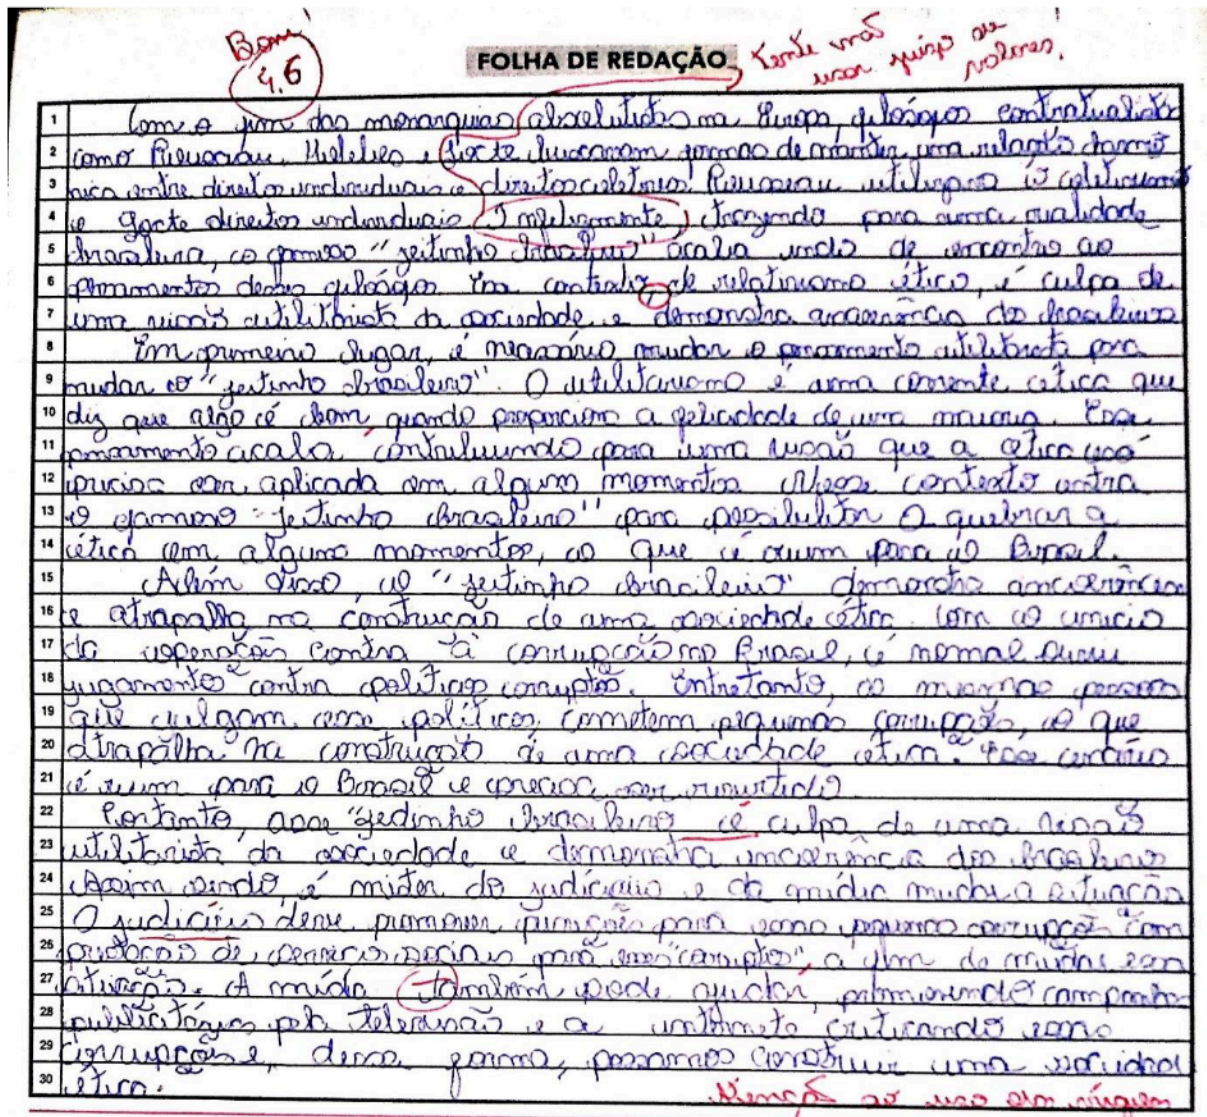 Bom!
4.6
FOLHA DE REDAÇÃO
Tente não
usar juízo de
valores.
1 Com o fim das monarquias absolutistas na Europa, filósofos contratualistas
2 como Rousseau, Hobbes e Locke buscavam formas de manter uma relação harmô
3 nica entre direitos individuais e direitos coletivos. Rousseau utilizava o coletivismo
4 e Locke direitos individuais. Infelizmente, trazendo para uma realidade
5 brasileira, o famoso "jeitinho brasileiro" acaba indo de encontro ao
6 pensamentos desses filósofos. Esse contexto, de relativismo ético, é culpa de
7 uma visão utilitarista da sociedade e demonstra incoerência dos brasileiros
8 Em primeiro lugar, é necessário mudar o pensamento utilitarista para
9 mudar o "jeitinho brasileiro". O utilitarismo é uma corrente ética que
10 diz que algo é bom, quando proporciona a felicidade de uma maioria. Esse
11 pensamento acaba, contribuindo para uma visão que a ética não
12 precisa ser aplicada em alguns momentos. Nesse contexto entra
13 o famoso "jeitinho brasileiro" para possibilitar o quebrar a
14 ética em alguns momentos, o que é ruim para o Brasil.
15 Além disso, o "jeitinho brasileiro" demonstra incoerências
16 e atrapalha na construção de uma sociedade ética. Com o início
17 da operação contra à corrupção no Brasil, é normal ouvir
18 jugamentos contra políticos corruptos. Entretanto, as mesmas pessoas
19 que julgam esses políticos, cometem pequenas corrupções, o que
20 atrapalha na construção de uma sociedade ética. Esse cenário
21 é ruim para o Brasil e precisa ser revertido
22 Portanto, esse "jedinho brasileiro é culpa de uma visão
23 utilitarista da sociedade e demonstra incoerência dos brasileiros
24 Assim sendo, é mister do judiciário e da mídia mudar a situação
25 O judiciário deve promover punições para essas pequenas corrupções com
26 prestação de serviços sociais para esses "corruptos", a fim de mudar essa
27 situação. A mídia também pode ajudar, promovendo campanhas
28 publicitárias pela televisão e a internet criticando essas
29 corrupções e, dessa forma, possamos construir uma sociedad
30 ética.
Atenção ao uso em vírgulas